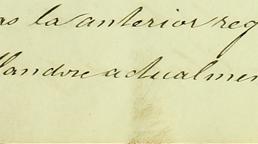 as la anterior reg
llandose actualmen